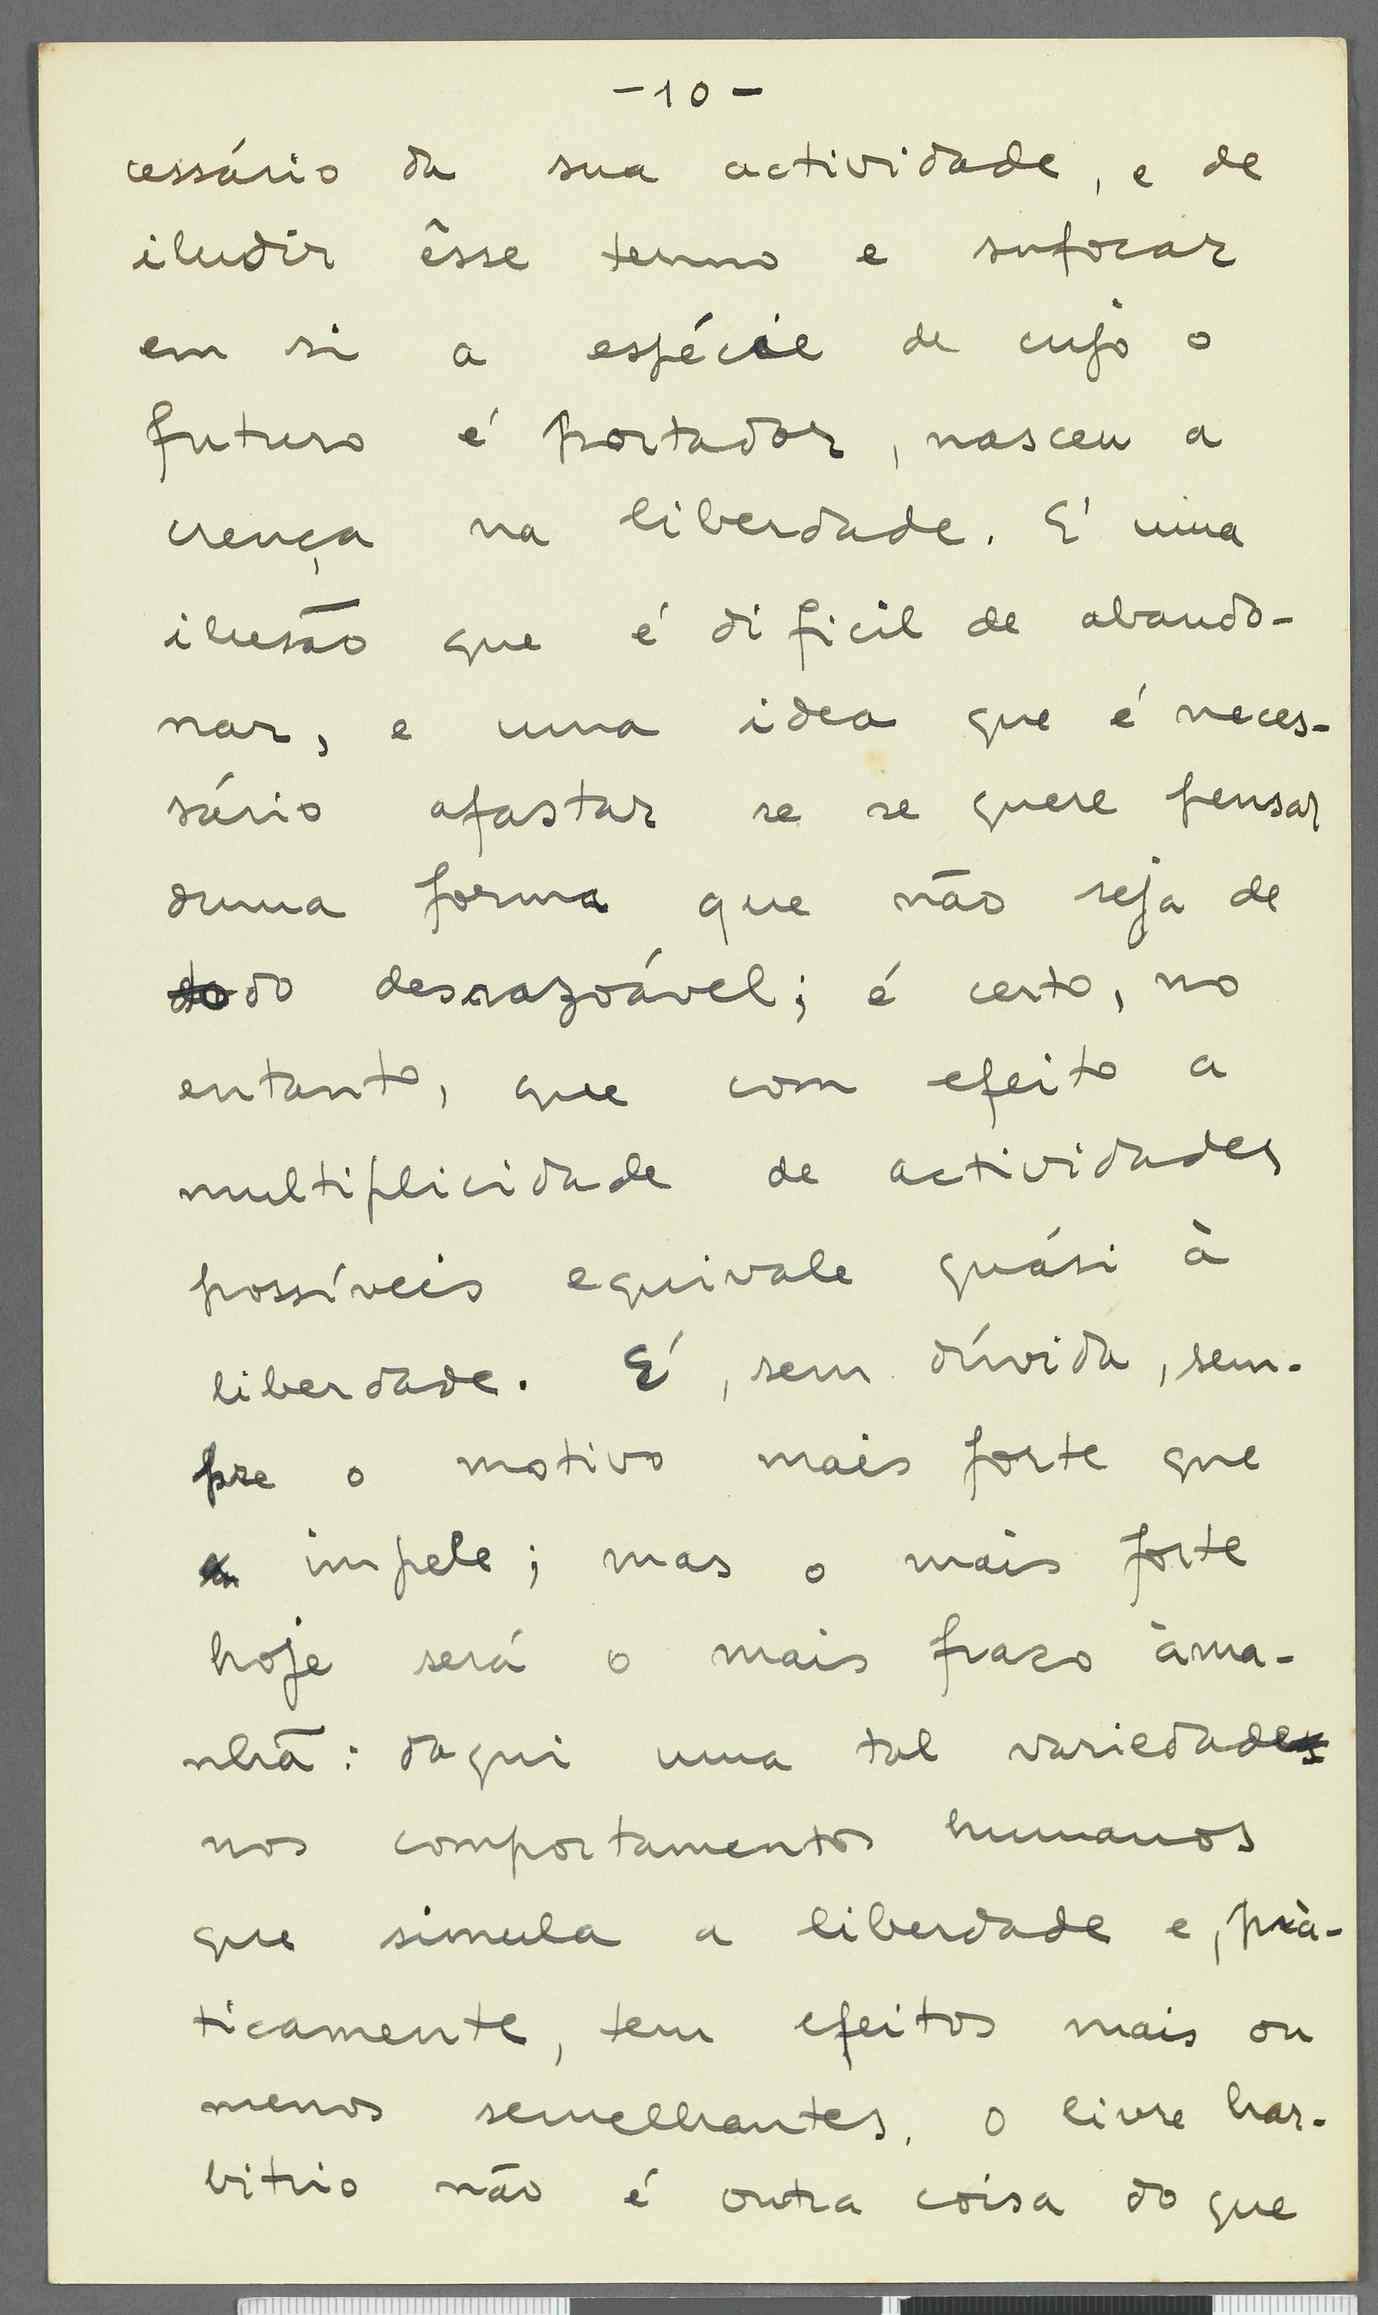 -10-
cessário da sua actividade, e de
iludir êsse termo e sufocar
em si a espécie de cujo o
futuro é portador, nasceu a
crença na liberdade. É uma
ilusão que é dificil de abando-
nar, e uma idea que é neces-
sário afastar se se quere pensar
duma forma que não seja de
todo desrazoável; é certo, no
entanto, que com efeito a
multiplicidade de actividades
possíveis equivale quási à
liberdade. É, sem dúvida, sem-
pre o motivo mais forte que
impele; mas o mais forte
hoje será o mais fraco àma-
nhã: daqui uma tal variedade
nos comportamentos humanos
que simula a liberdade e, prà-
ticamente, tem efeitos mais ou
menos semelhantes. O livre har-
bitrio não é outra coisa do que